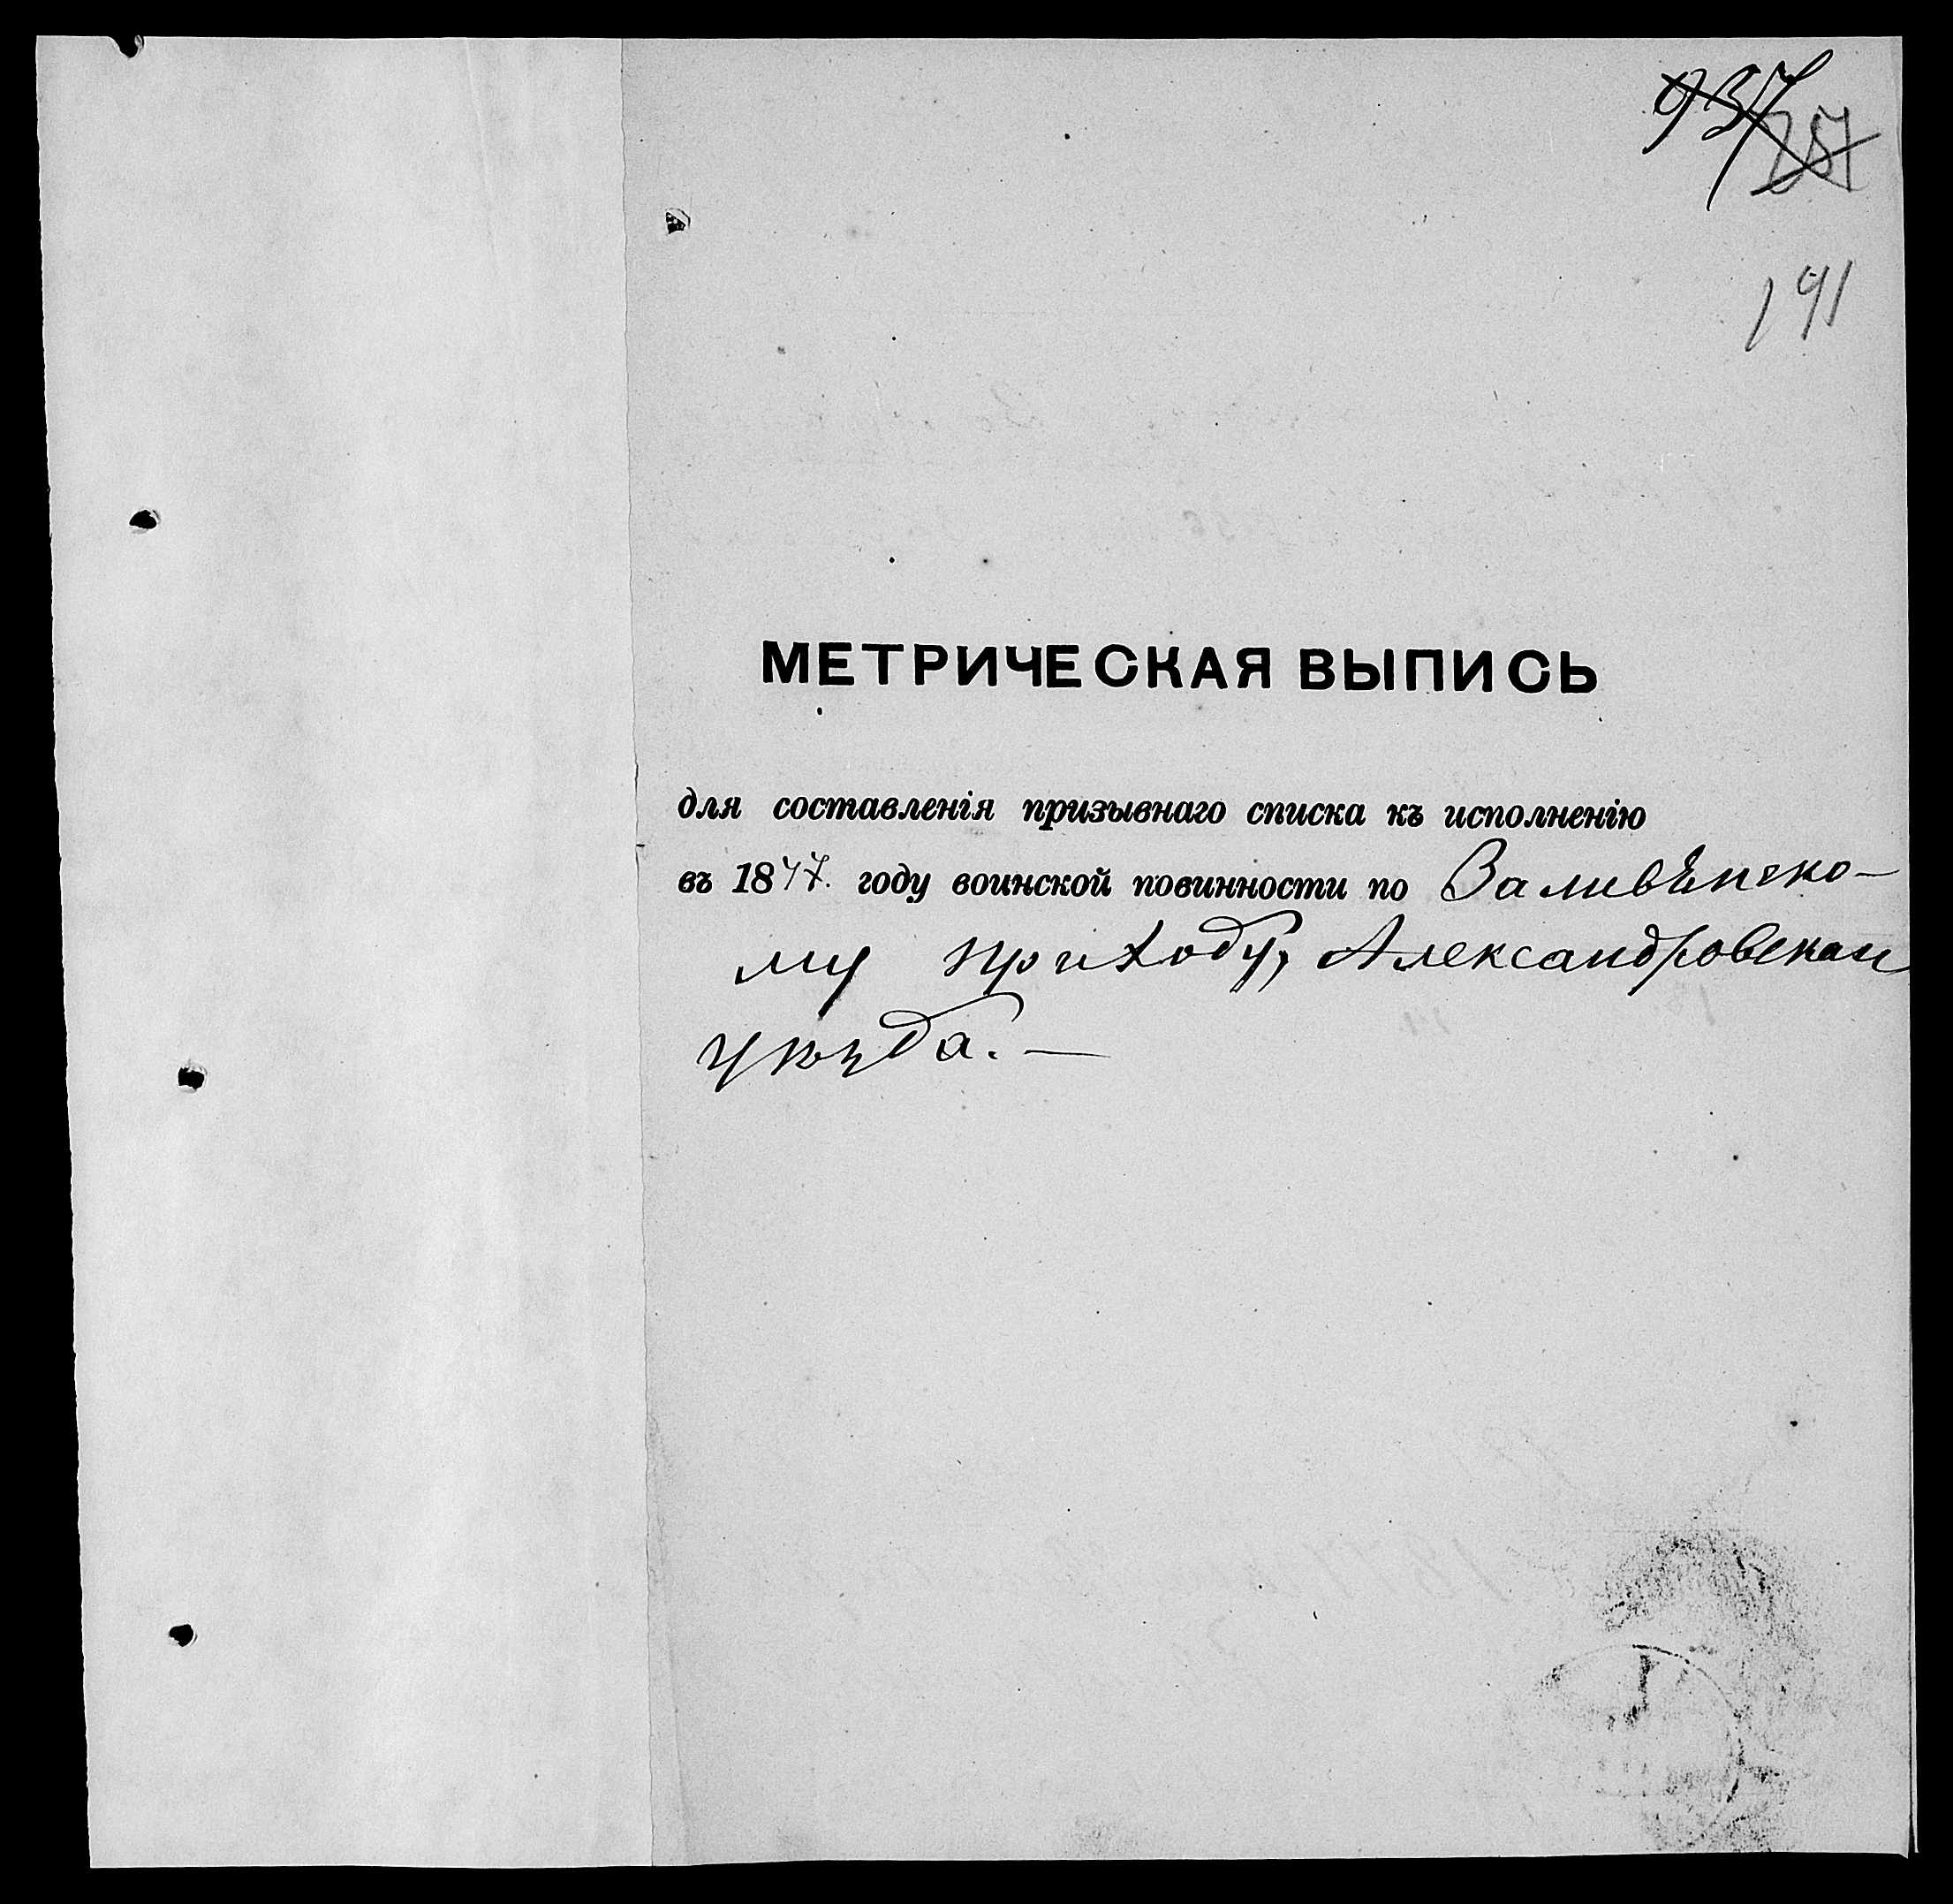 937
257
191
МЕТРИЧЕСКАЯ ВЫПИСЬ
для составленія призывнаго списка къ исполненію
въ 1877. году воинской повинности по Заливѣнско-
му приходу, Александровскаго
уѣзда. —